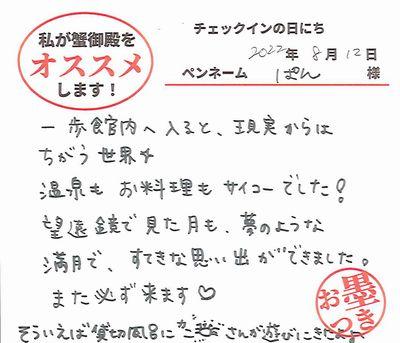 私が蟹御殿を
オススメ
します！
チェックインの日にち
2022年 8月 12日
ペンネーム ぱん 様
一歩館内へ入ると、現実からは
ちがう世界
温泉も お料理も サイコーでした！
望遠鏡で見た月も、夢のような
満月で、すてきな思い出ができました。
また必ず来ます♡
そういえば貸切風呂に さんが遊びにきたよ
お墨つき